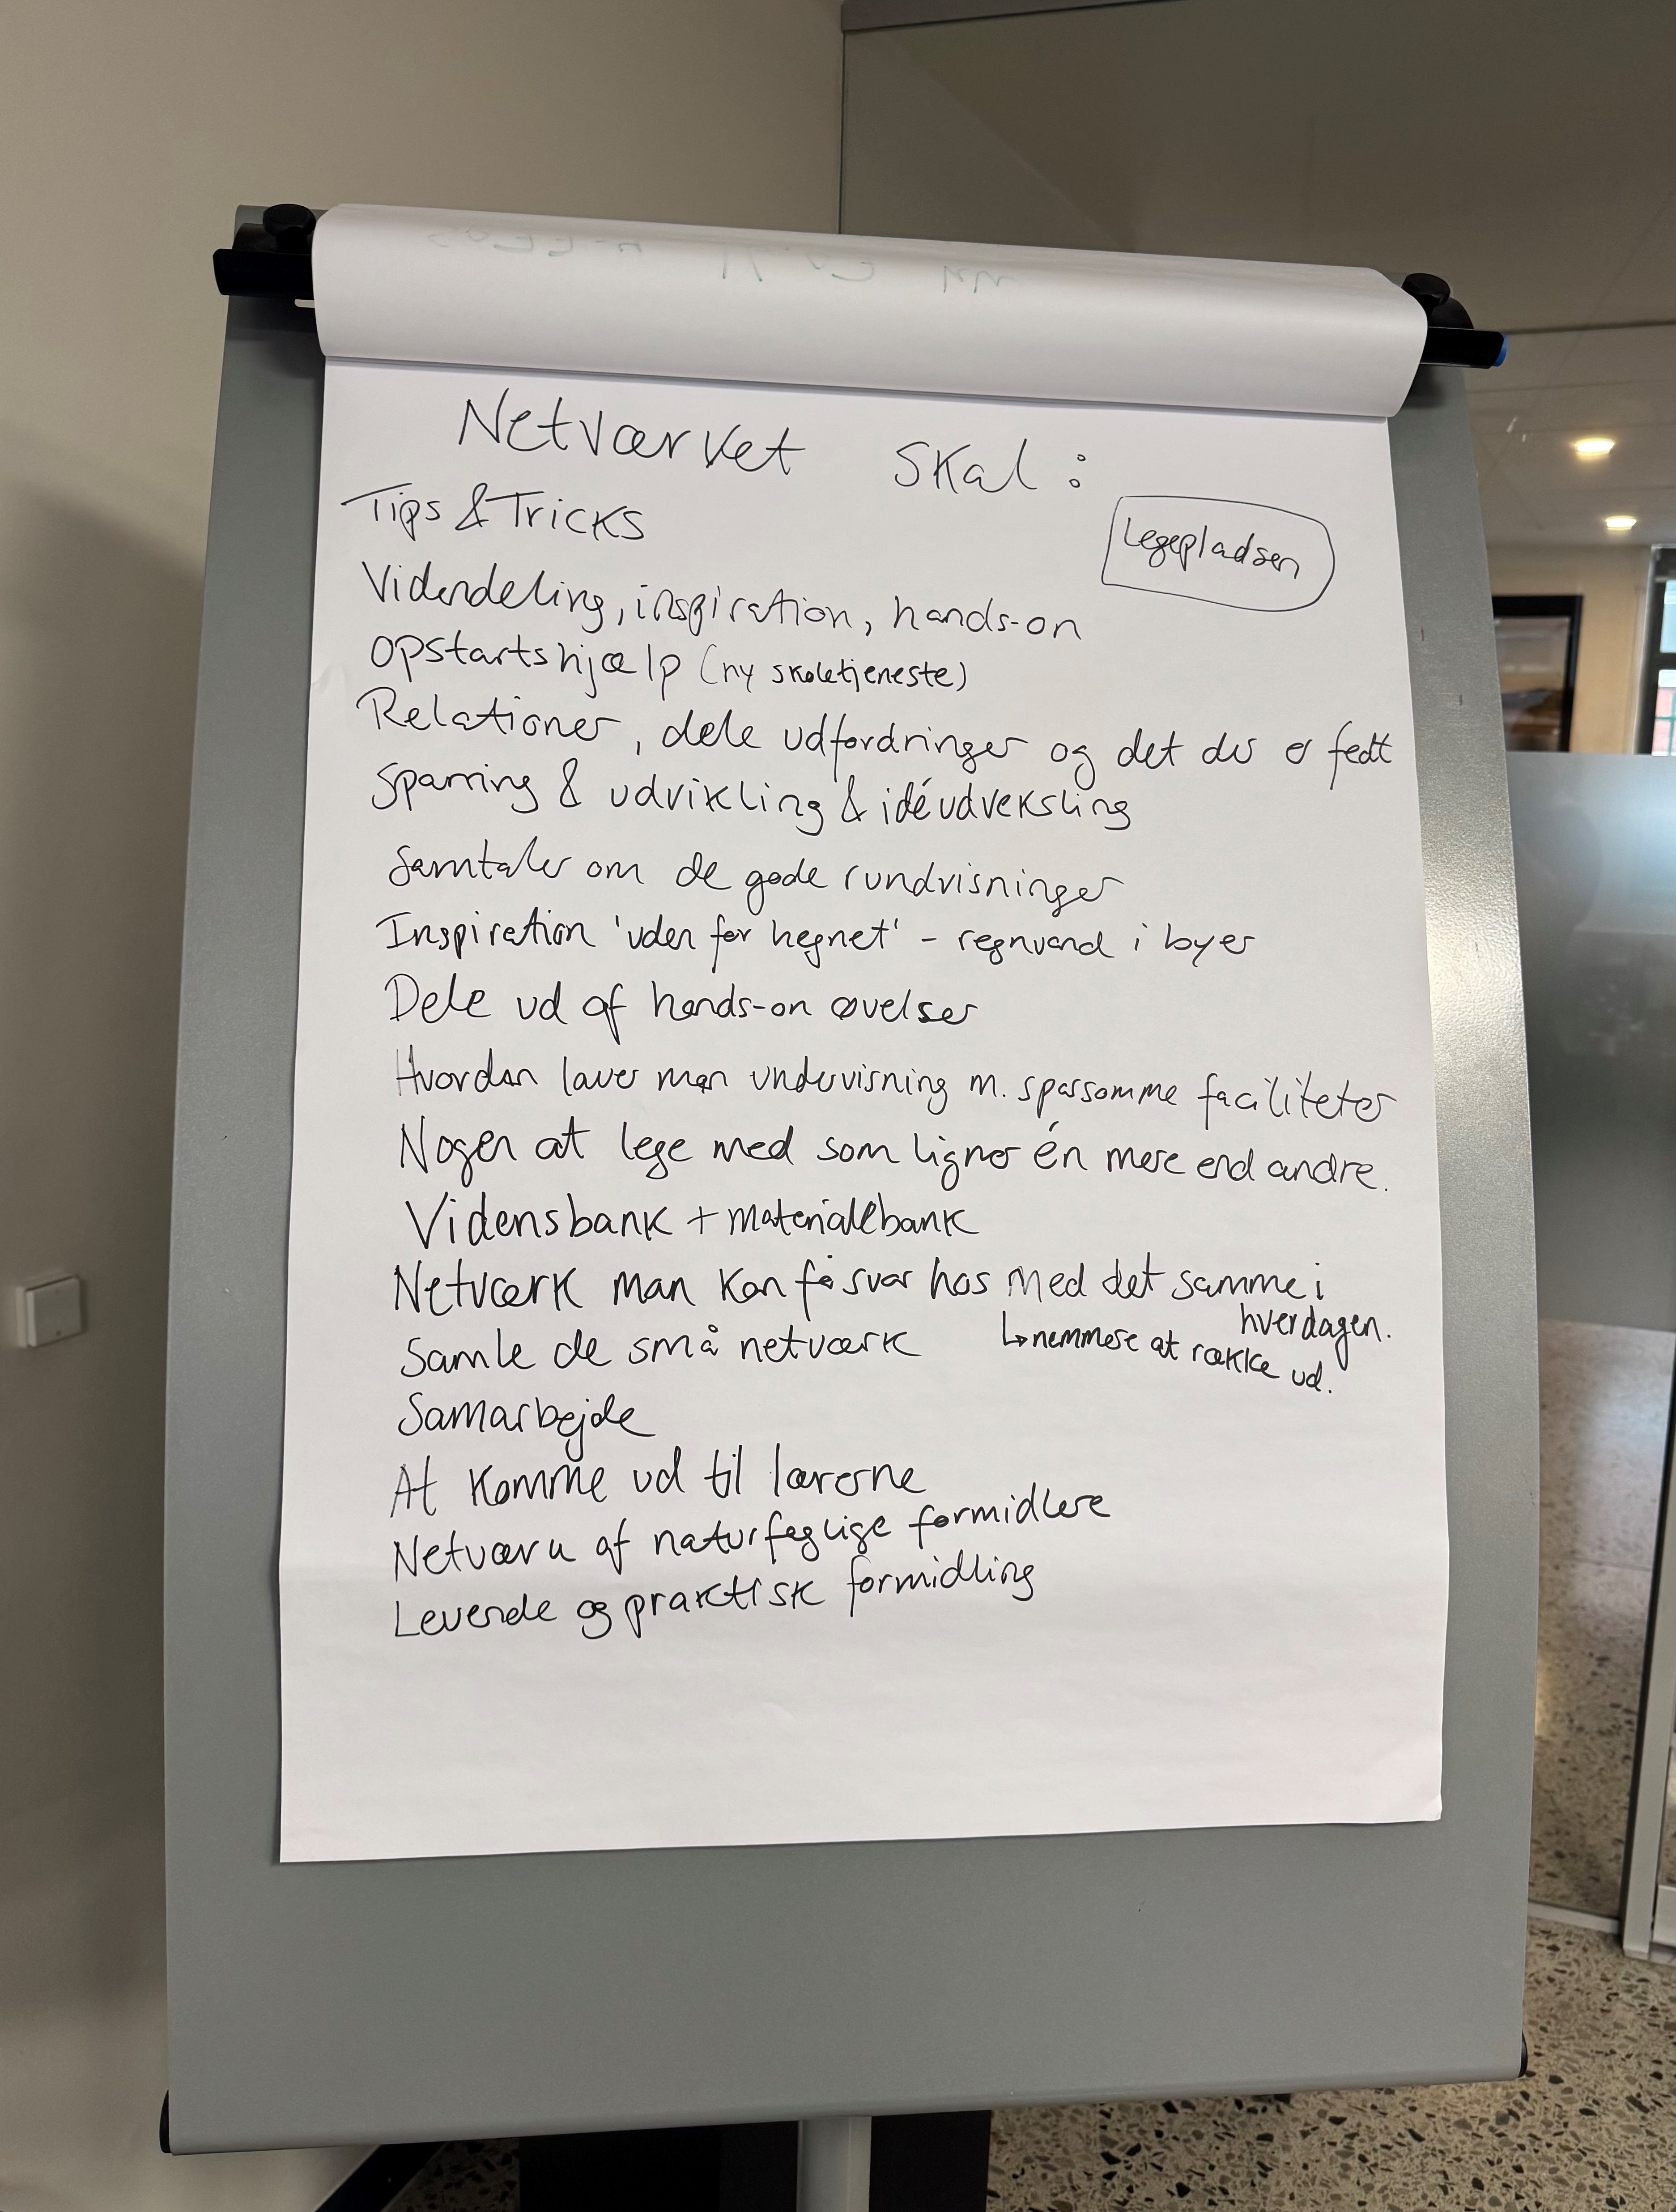 Netværket skal:
Tips & Tricks
Legepladsen
Videndeling, inspiration, hands-on
Opstartshjælp (ny skoletjeneste)
Relationer, dele udfordringer og det der er fedt
Sparring & udvikling & idéudveksling
Samtaler om de gode rundvisninger
Inspiration 'uden for hegnet' - regnvand i byer
Dele ud af hands-on øvelser
Hvordan laver man undervisning m. sparsomme faciliteter
Nogen at lege med som ligner én mere end andre.
Vidensbank + materialebank
Netværk man kan få svar hos med det samme i
hverdagen.
↳ nemmere at række ud.
Samle de små netværk
Samarbejde
At komme ud til lærerne
Netværk af naturfaglige formidlere
Levende og praktisk formidling